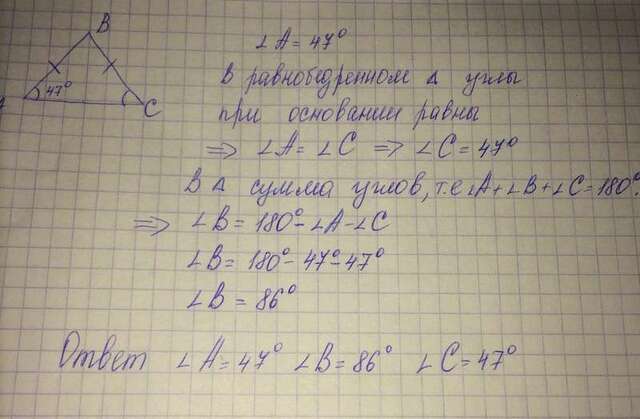 B
A 47° C
∠A = 47°
В равнобедренном Δ углы
при основании равны
⇒ ∠A = ∠C ⇒ ∠C = 47°
В Δ сумма углов, т.е ∠A + ∠B + ∠C = 180°.
⇒ ∠B = 180° - ∠A - ∠C
∠B = 180° - 47° - 47°
∠B = 86°
Ответ ∠A = 47° ∠B = 86° ∠C = 47°